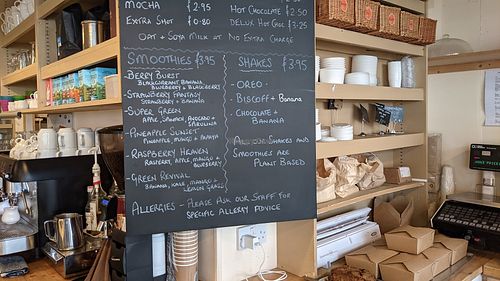 MOCHA £2.95
EXTRA SHOT £0.80
HOT CHOCOLATE £2.50
DELUX HOT CHOC £3.25
OAT + SOYA MILK AT NO EXTRA CHARGE
SMOOTHIES £3.95
- BERRY BURST
BLACKCURRANT, BANANA
BLUEBERRY + BLACKBERRY
- STRAWBERRY FANTASY
STRAWBERRY + BANANA
- SUPER GREEN
APPLE, SPINACH, AVOCADO +
SPIRULINA
- PINEAPPLE SUNSET
PINEAPPLE, MANGO + PAPAYA
- RASPBERRY HEAVEN
RASPBERRY, APPLE, MANGO +
BLUEBERRY
- GREEN REVIVAL
BANANA, KALE, MANGO +
LEMON GRASS
SHAKES £3.95
- OREO
- BISCOFF + Banana
- CHOCOLATE +
BANANA
ALL SHAKES AND
SMOOTHIES ARE
PLANT BASED
ALLERGIES - PLEASE ASK OUR STAFF FOR
SPECIFIC ALLERY ADVICE